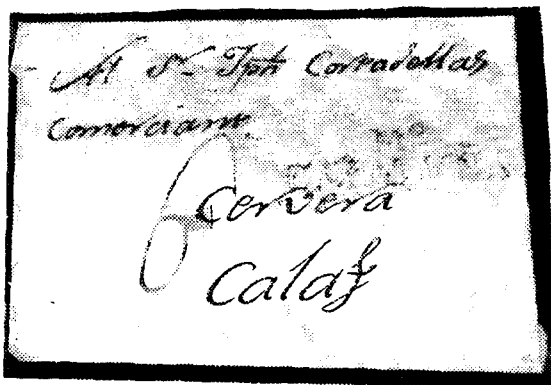 Al Sr. Jph Cortadellas
Comerciante
6
Cervera
Calaf